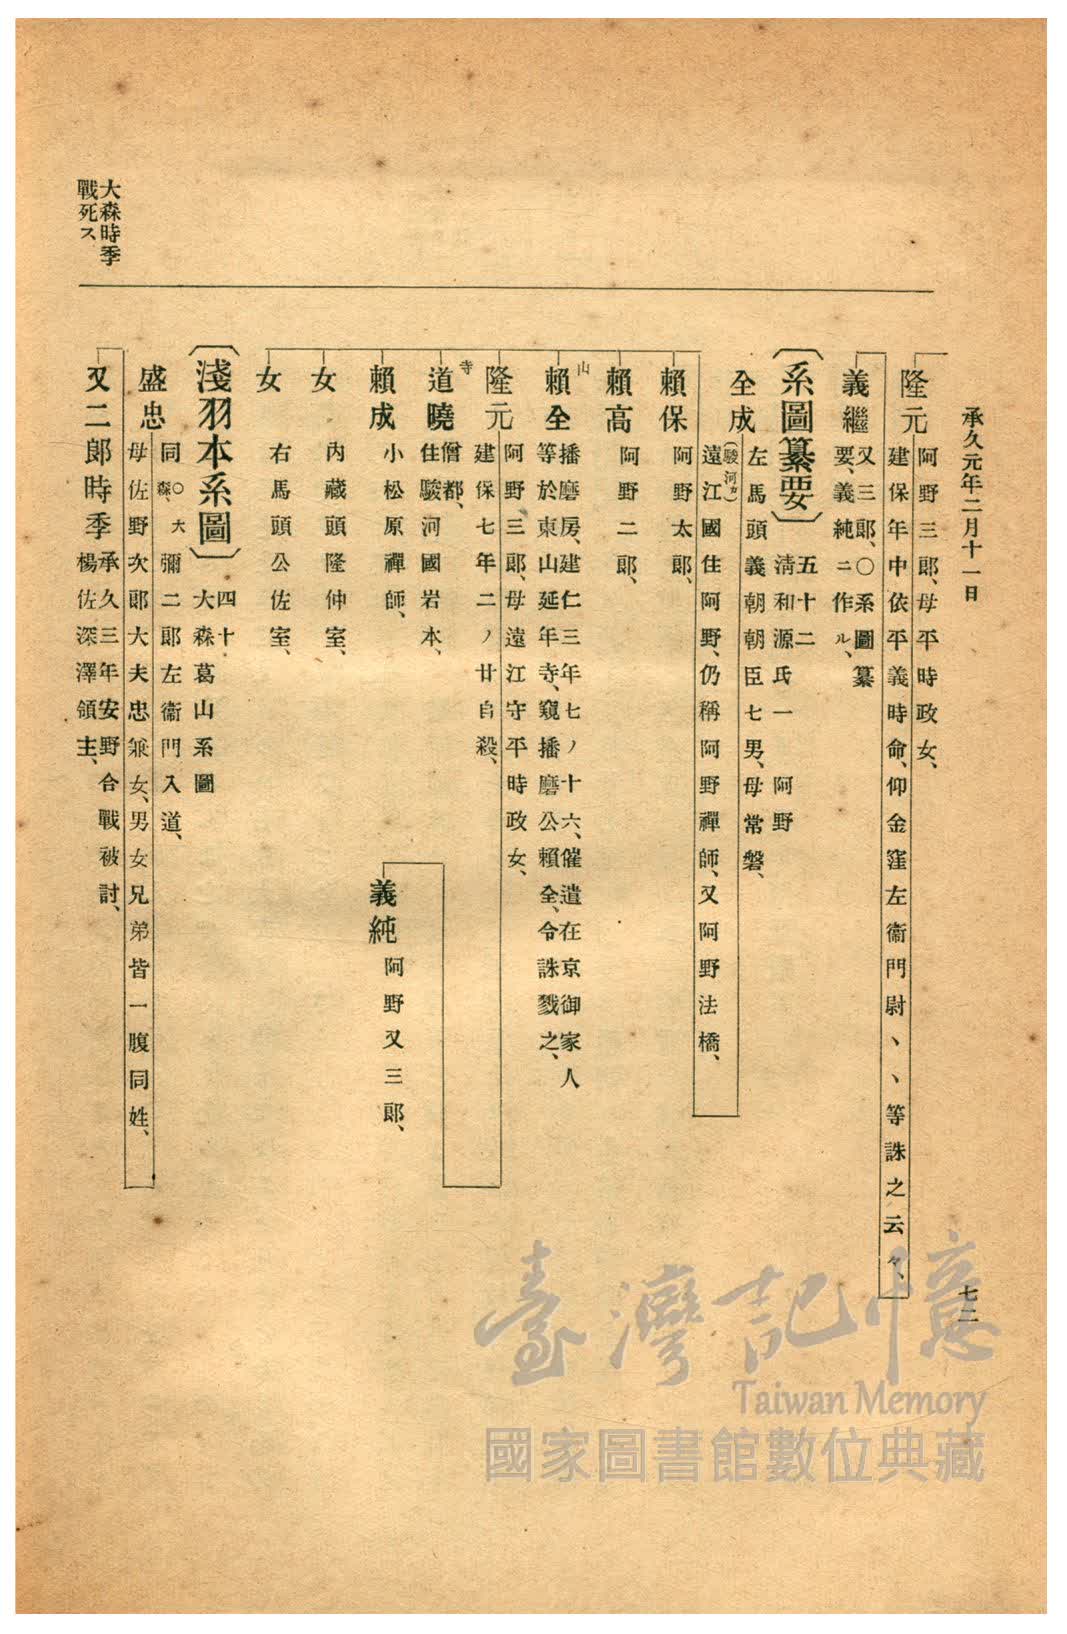 承久元年二月十一日
七二
隆元
阿野三郎、母平時政女、
建保年中依平義時命、仰金窪左衞門尉、、等誅之云々、
義繼
又三郎、○系圖纂
要、義純ニ作ル、
〔系圖纂要〕
五十二
淸和源氏一 阿野
全成
左馬頭義朝朝臣七男、母常磐、
(駿河カ)
遠江國住阿野、仍稱阿野禪師、又阿野法橋、
賴保
阿野太郎、
賴高
阿野二郎、
山
賴全
播磨房、建仁三年七ノ十六、催遣在京御家人
等於東山延年寺、窺播磨公賴全、令誅戮之、
隆元
阿野三郎、母遠江守平時政女、
建保七年二ノ廿自殺、
義純
阿野又三郎、
寺
道曉
僧都、
住駿河國岩本、
賴成
小松原禪師、
女
內藏頭隆仲室、
女
右馬頭公佐室、
〔淺羽本系圖〕
四十
大森葛山系圖
盛忠
同○大森、彌二郎左衞門入道、
母佐野次郎大夫忠兼女、男女兄弟皆一腹同姓、
又二郎時季
承久三年安野合戰被討、
楊佐深澤領主、
大森時季
戰死ス、
臺灣記憶
Taiwan Memory
國家圖書館數位典藏